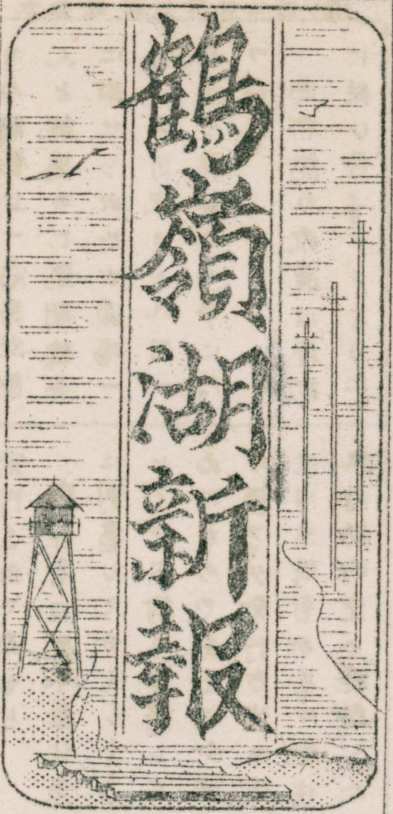 鶴嶺湖新報